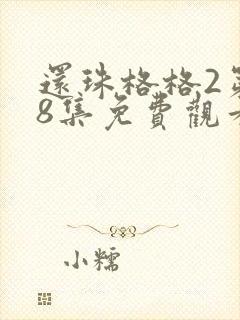 還珠格格2
8集免費觀
小糯